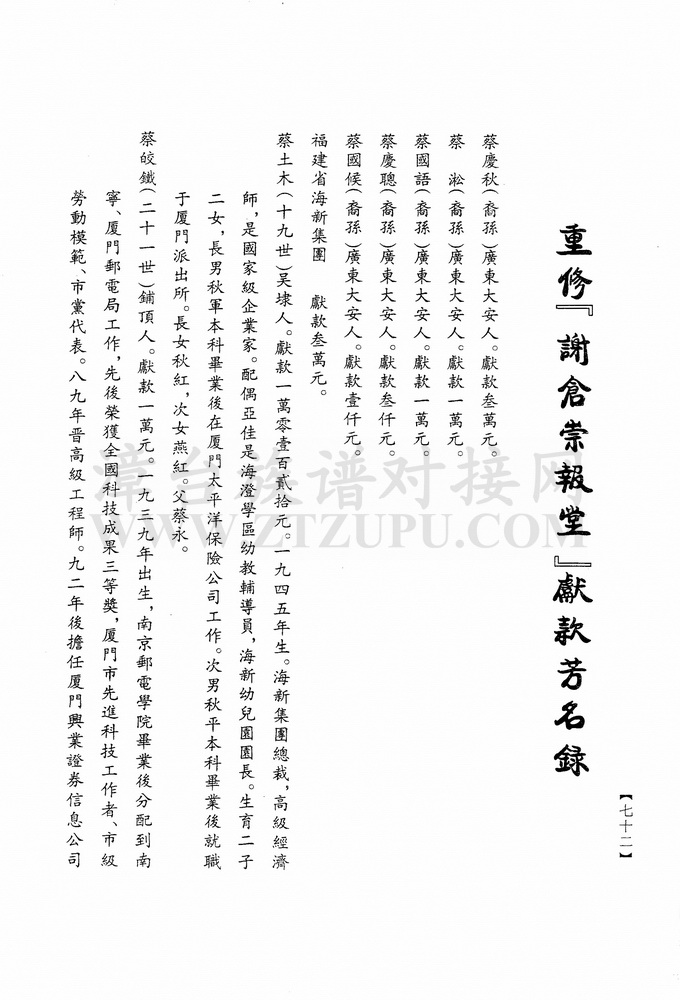 重修『謝倉崇報堂』獻款芳名録
蔡慶秋(裔孫)廣東大安人。獻款叁萬元。
蔡　淞(裔孫)廣東大安人。獻款一萬元。
蔡國語(裔孫)廣東大安人。獻款一萬元。
蔡慶聰(裔孫)廣東大安人。獻款叁仟元。
蔡國候(裔孫)廣東大安人。獻款壹仟元。
福建省海新集團　獻款叁萬元。
蔡土木(十九世)吴埭人。獻款一萬零壹百貳拾元。一九四五年生。海新集團總裁,高級經濟
師,是國家級企業家。配偶亞佳是海澄學區幼教輔導員,海新幼兒園園長。生育二子
二女,長男秋軍本科畢業後在厦門太平洋保險公司工作。次男秋平本科畢業後就職
于厦門派出所。長女秋紅,次女燕紅。父蔡永。
蔡皎鐵(二十一世)鋪頂人。獻款一萬元。一九三九年出生,南京郵電學院畢業後分配到南
寧、厦門郵電局工作,先後榮獲全國科技成果三等獎,厦門市先進科技工作者、市級
勞動模範、市黨代表。八九年晋高級工程師。九二年後擔任厦門興業證券信息公司
【七十二】
漳台族谱对接网
WWW.ZTZUPU.COM